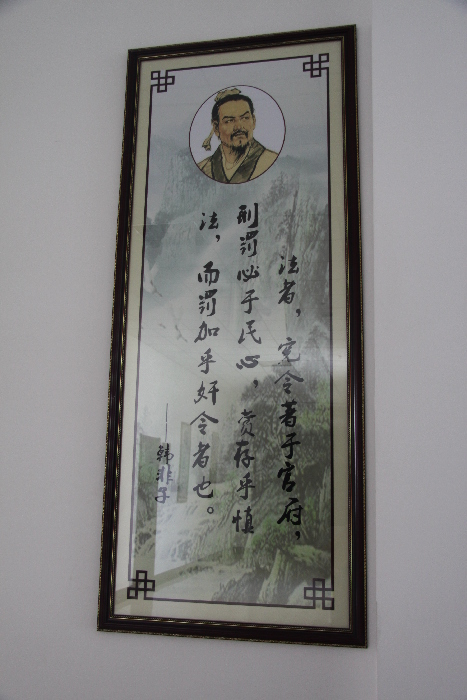 法者,宪令著于官府,
刑罚必于民心,赏存乎慎
法,而罚加乎奸令者也。
——韩非子